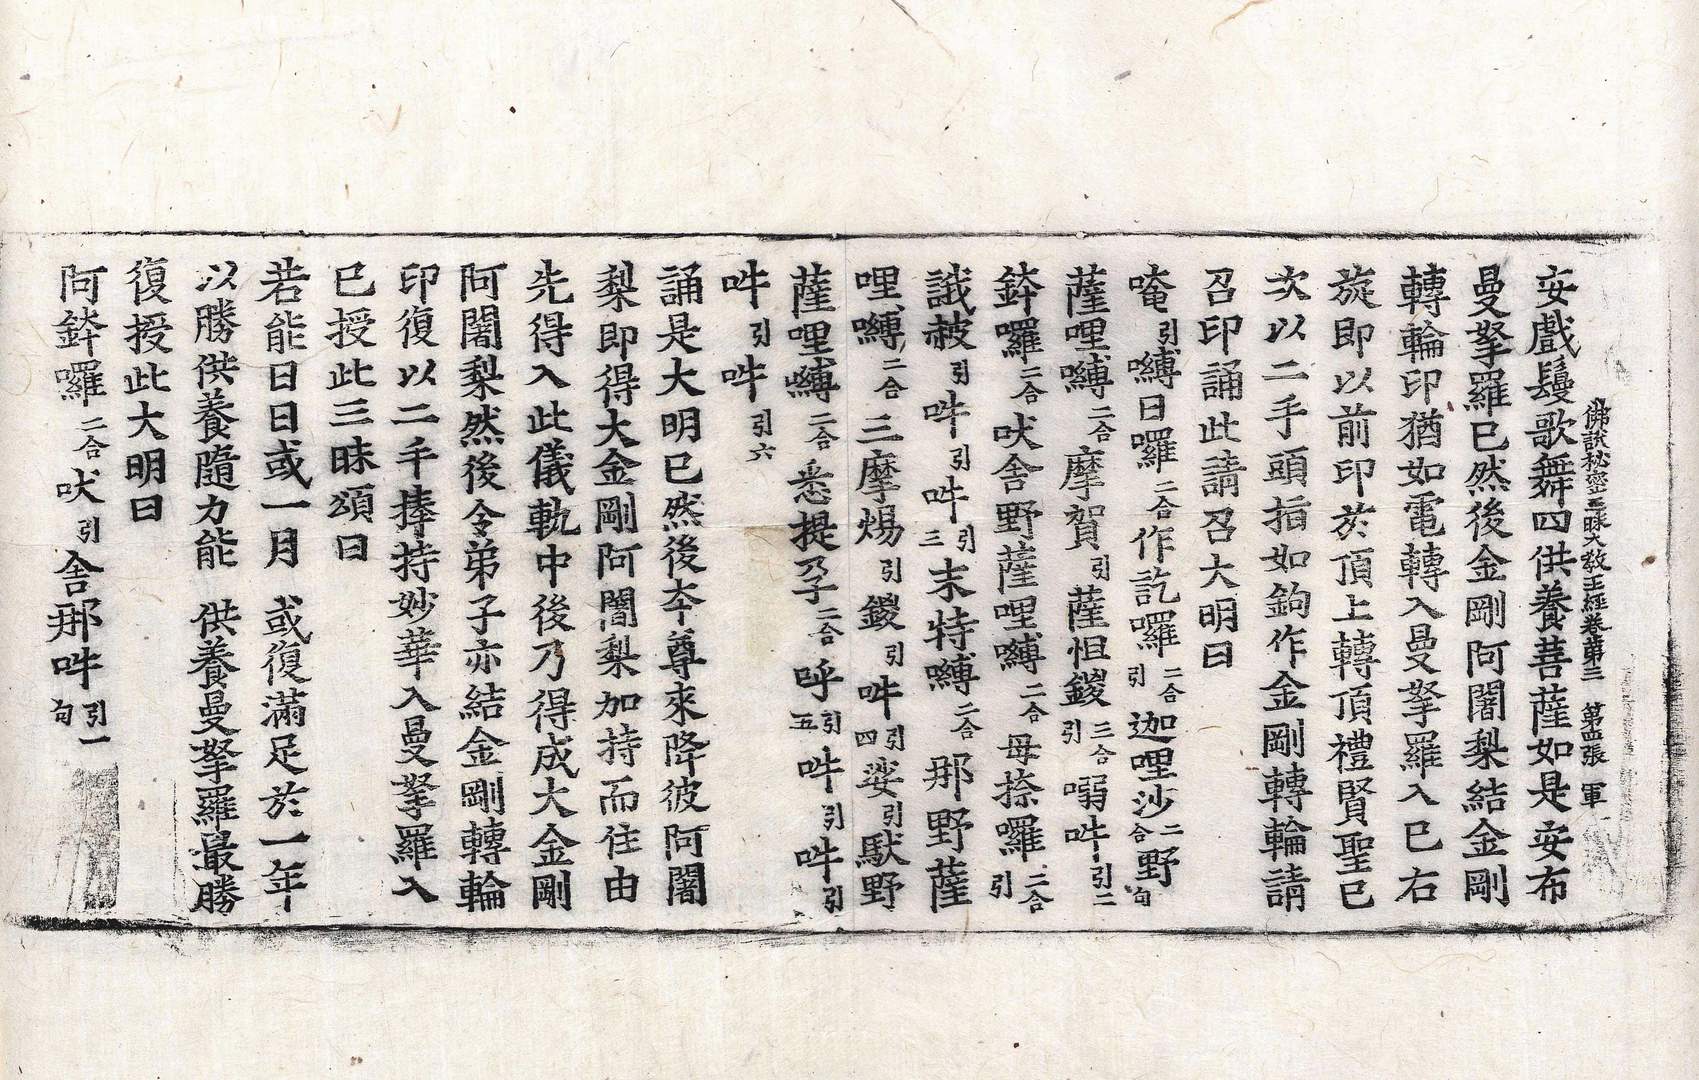 佛說秘密三昧大教王經卷第三 第四張 軍
安戲鬘歌舞四供養菩薩如是安布
曼拏羅已然後金剛阿闍梨結金剛
轉輪印猶如電轉入曼拏羅入已右
旋即以前印於頂上轉頂禮賢聖已
次以二手頭指如鉤作金剛轉輪請
召印誦此請召大明曰
唵引嚩日囉二合作訖囉二合引迦哩沙二合野句
薩哩嚩二合摩賀引薩怛鑁三合引嗍吽引二
鉢囉二合吠舍野薩哩嚩二合母捺囉二合引
誐赦引吽引吽引三末特嚩二合那野薩
哩嚩二合三摩煬引鑁引吽引四娑引馱野
薩哩嚩二合悉提孕二合呼引五吽引吽引
吽引吽引六
誦是大明已然後本尊來降彼阿闍
梨即得大金剛阿闍梨加持而住由
先得入此儀軌中後乃得成大金剛
阿闍梨然後令弟子亦結金剛轉輪
印復以二手捧持妙華入曼拏羅入
已授此三昧頌曰
若能日日或一月 或復滿足於一年
以勝供養隨力能 供養曼拏羅最勝
復授此大明曰
阿鉢囉二合吠引舍那吽引一句